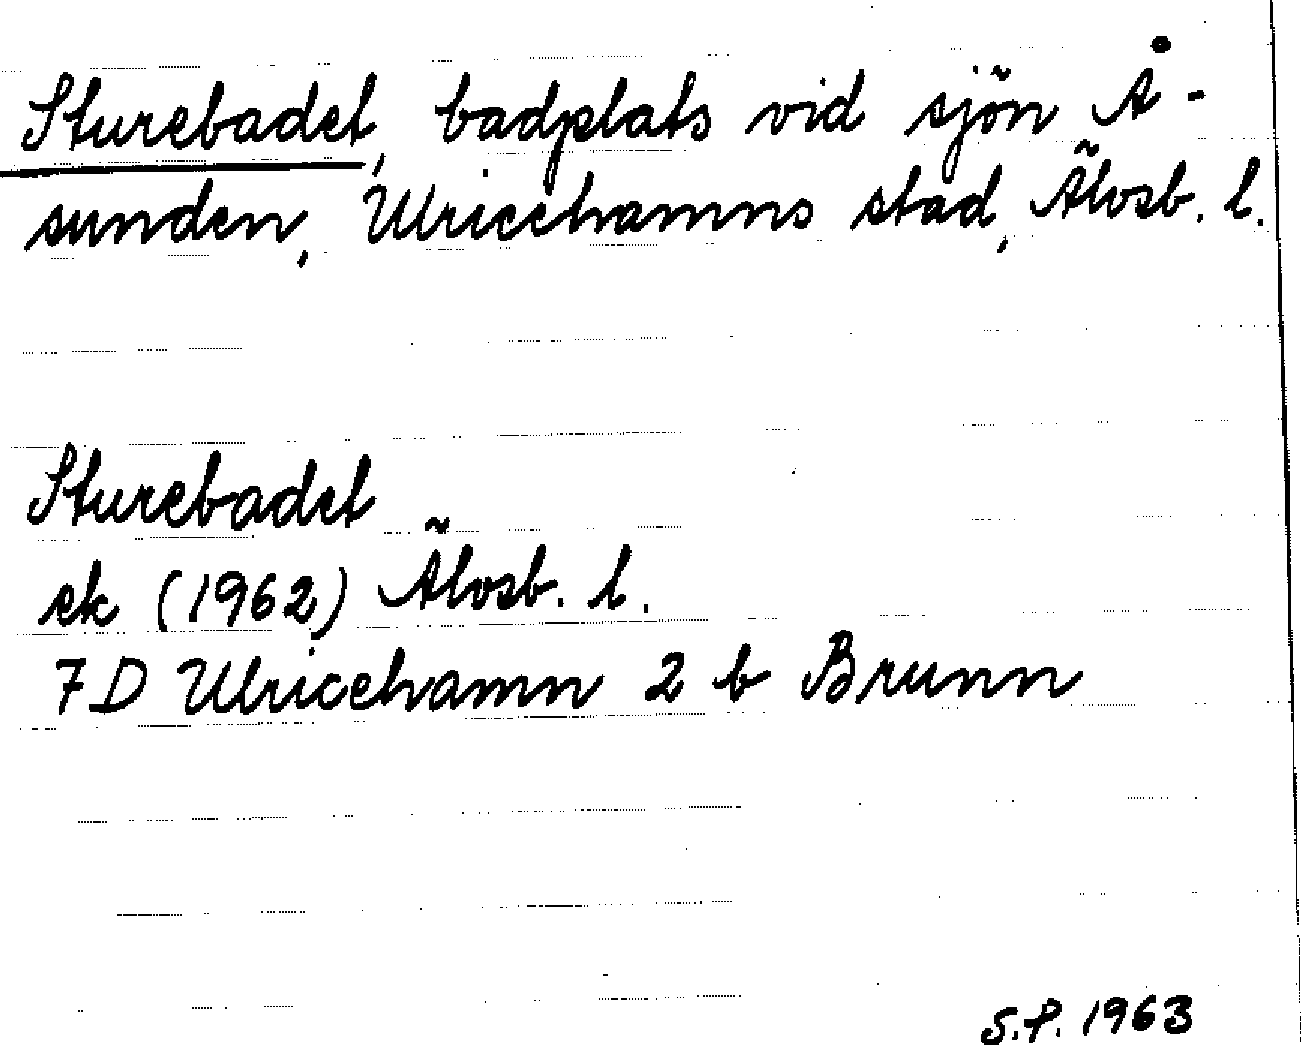 Sturebadet, badplats vid sjön Å-
sunden, Ulricehamns stad, Älvsb. l.
Sturebadet
ek (1962) Älvsb. l.
7D Ulricehamn 2 b Brunn
S.P. 1963